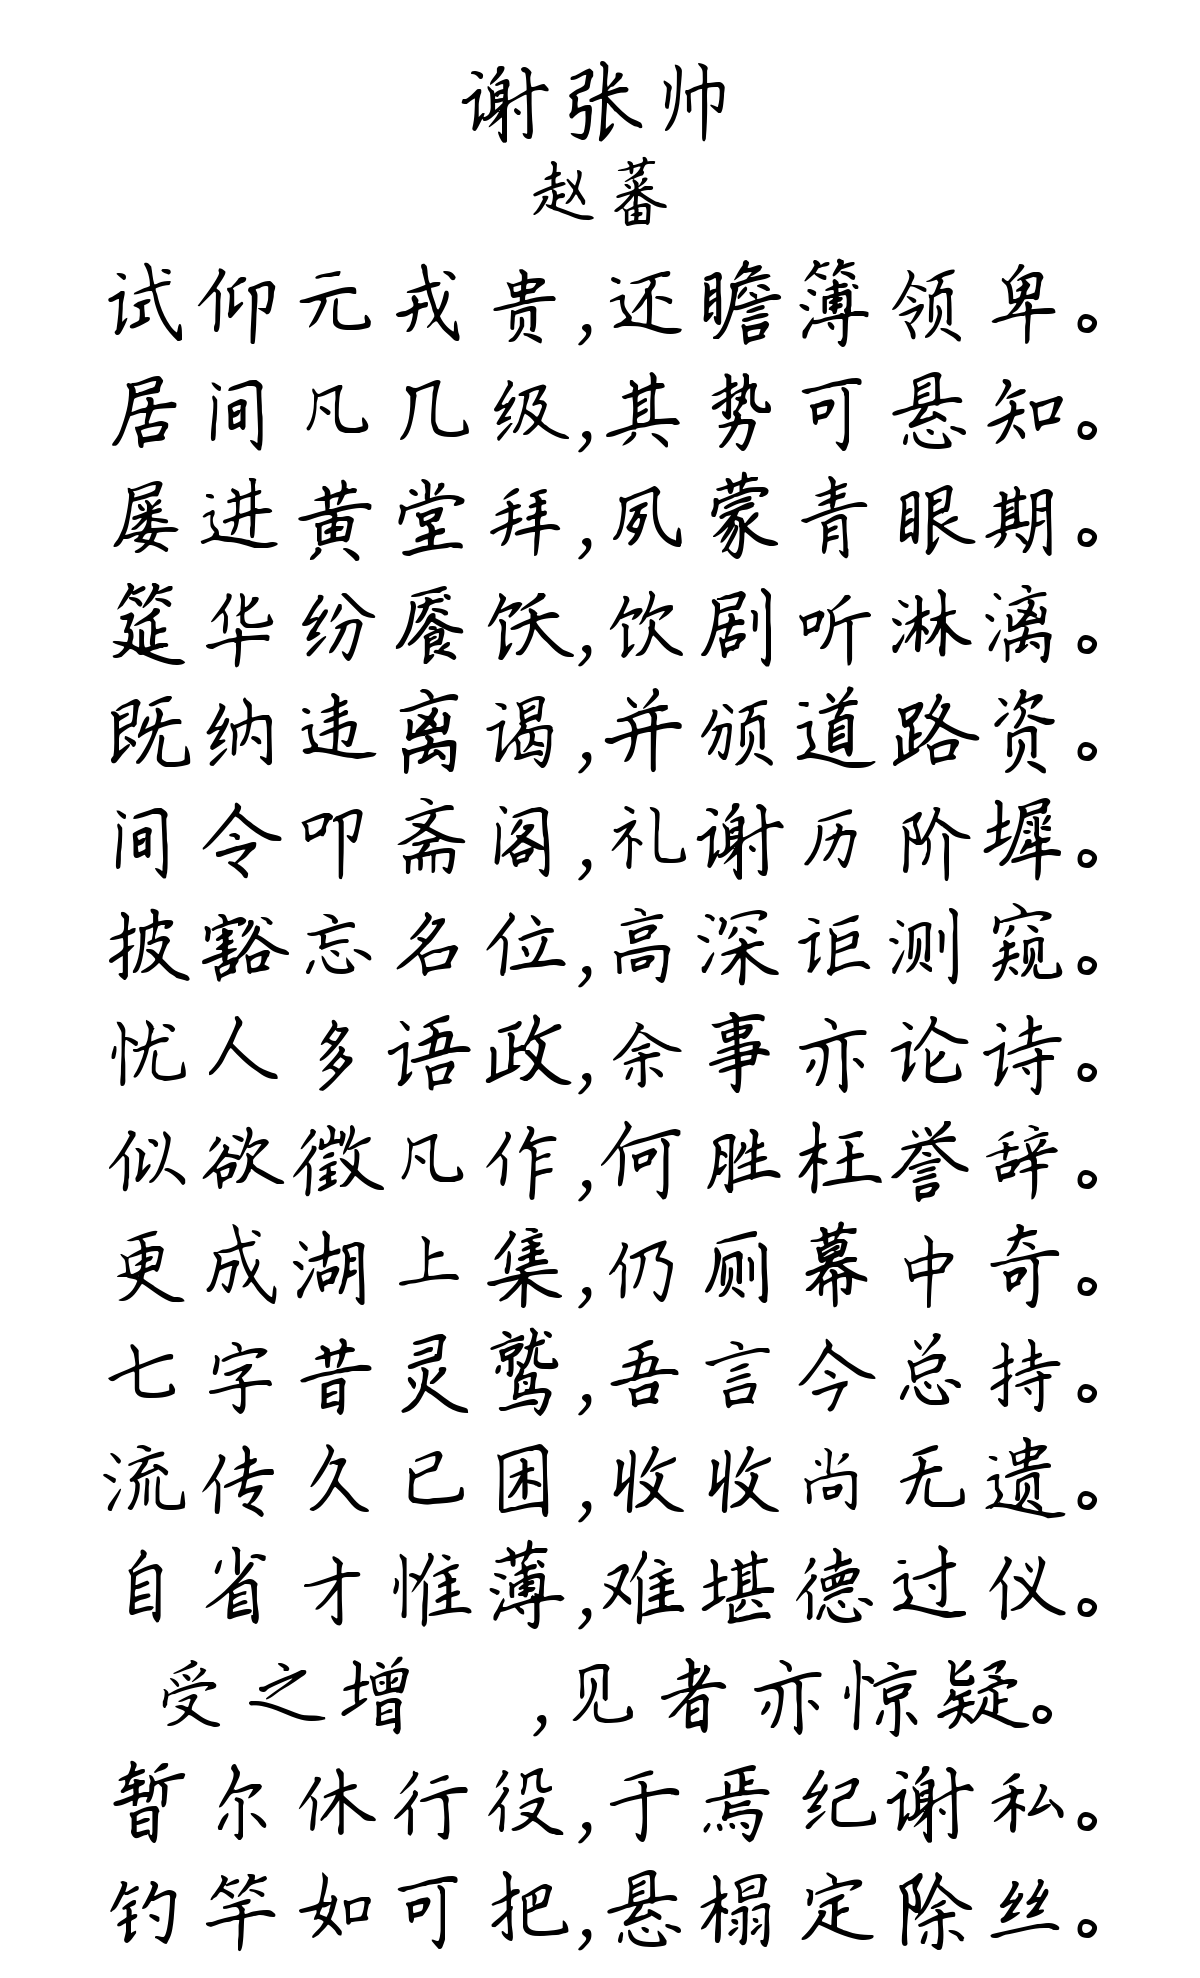 谢张帅
赵蕃
试仰元戎贵,还瞻簿领卑。
居间凡几级,其势可悬知。
屡进黄堂拜,夙蒙青眼期。
筵华纷餍饫,饮剧听淋漓。
既纳违离谒,并颁道路资。
间令叩斋阁,礼谢历阶墀。
披豁忘名位,高深讵测窥。
忧人多语政,余事亦论诗。
似欲徵凡作,何胜枉誉辞。
更成湖上集,仍厕幕中奇。
七字昔灵鹫,吾言今总持。
流传久已困,收收尚无遗。
自省才惟薄,难堪德过仪。
受之增 ,见者亦惊疑。
暂尔休行役,于焉纪谢私。
钓竿如可把,悬榻定除丝。